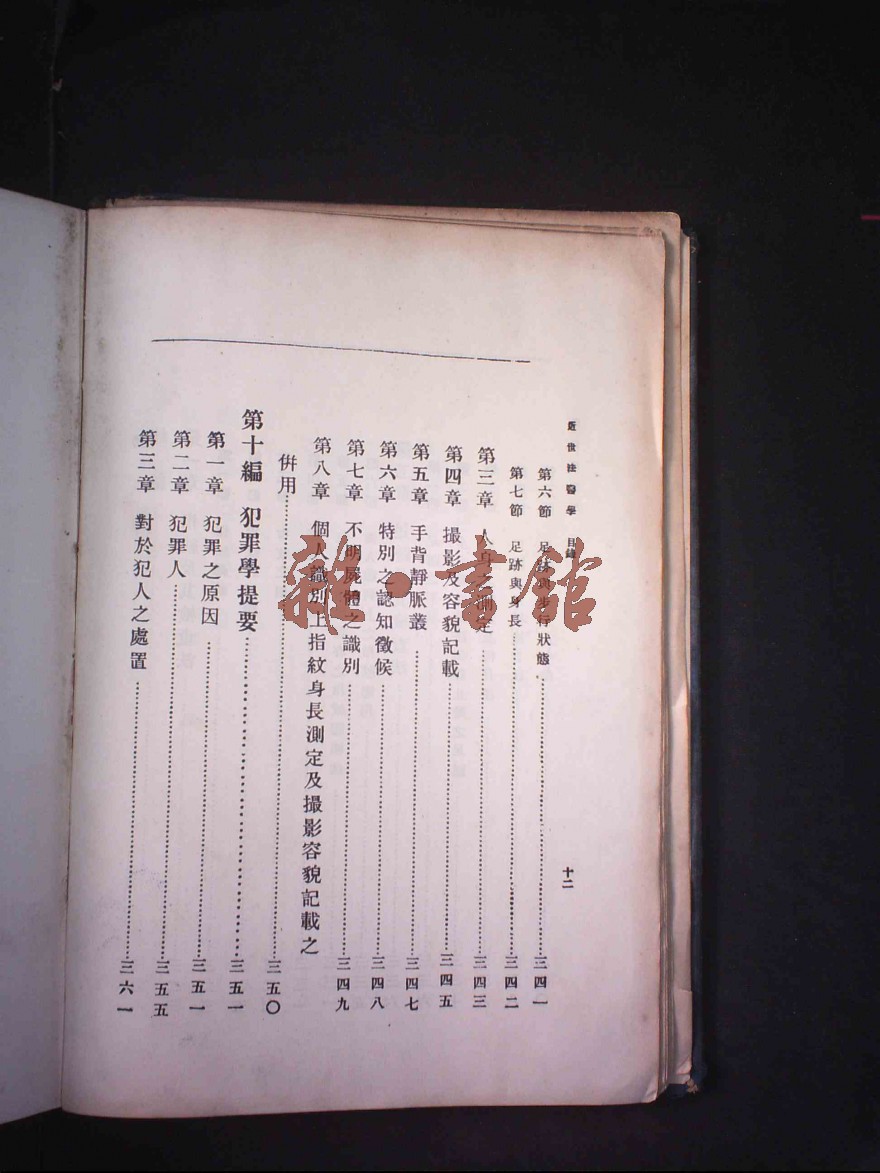 近世法醫學 目錄 十二
第六節 足跡與步行狀態 三四一
第七節 足跡與身長 三四二
第三章 人身之測定 三四三
第四章 撮影及容貌記載 三四五
第五章 手背靜脈叢 三四七
第六章 特別之認知徵候 三四八
第七章 不明屍體之識別 三四九
第八章 個人識別上指紋身長測定及撮影容貌記載之
併用 三五〇
第十編 犯罪學提要 三五一
第一章 犯罪之原因 三五一
第二章 犯罪人 三五五
第三章 對於犯人之處置 三六一
雜·書館